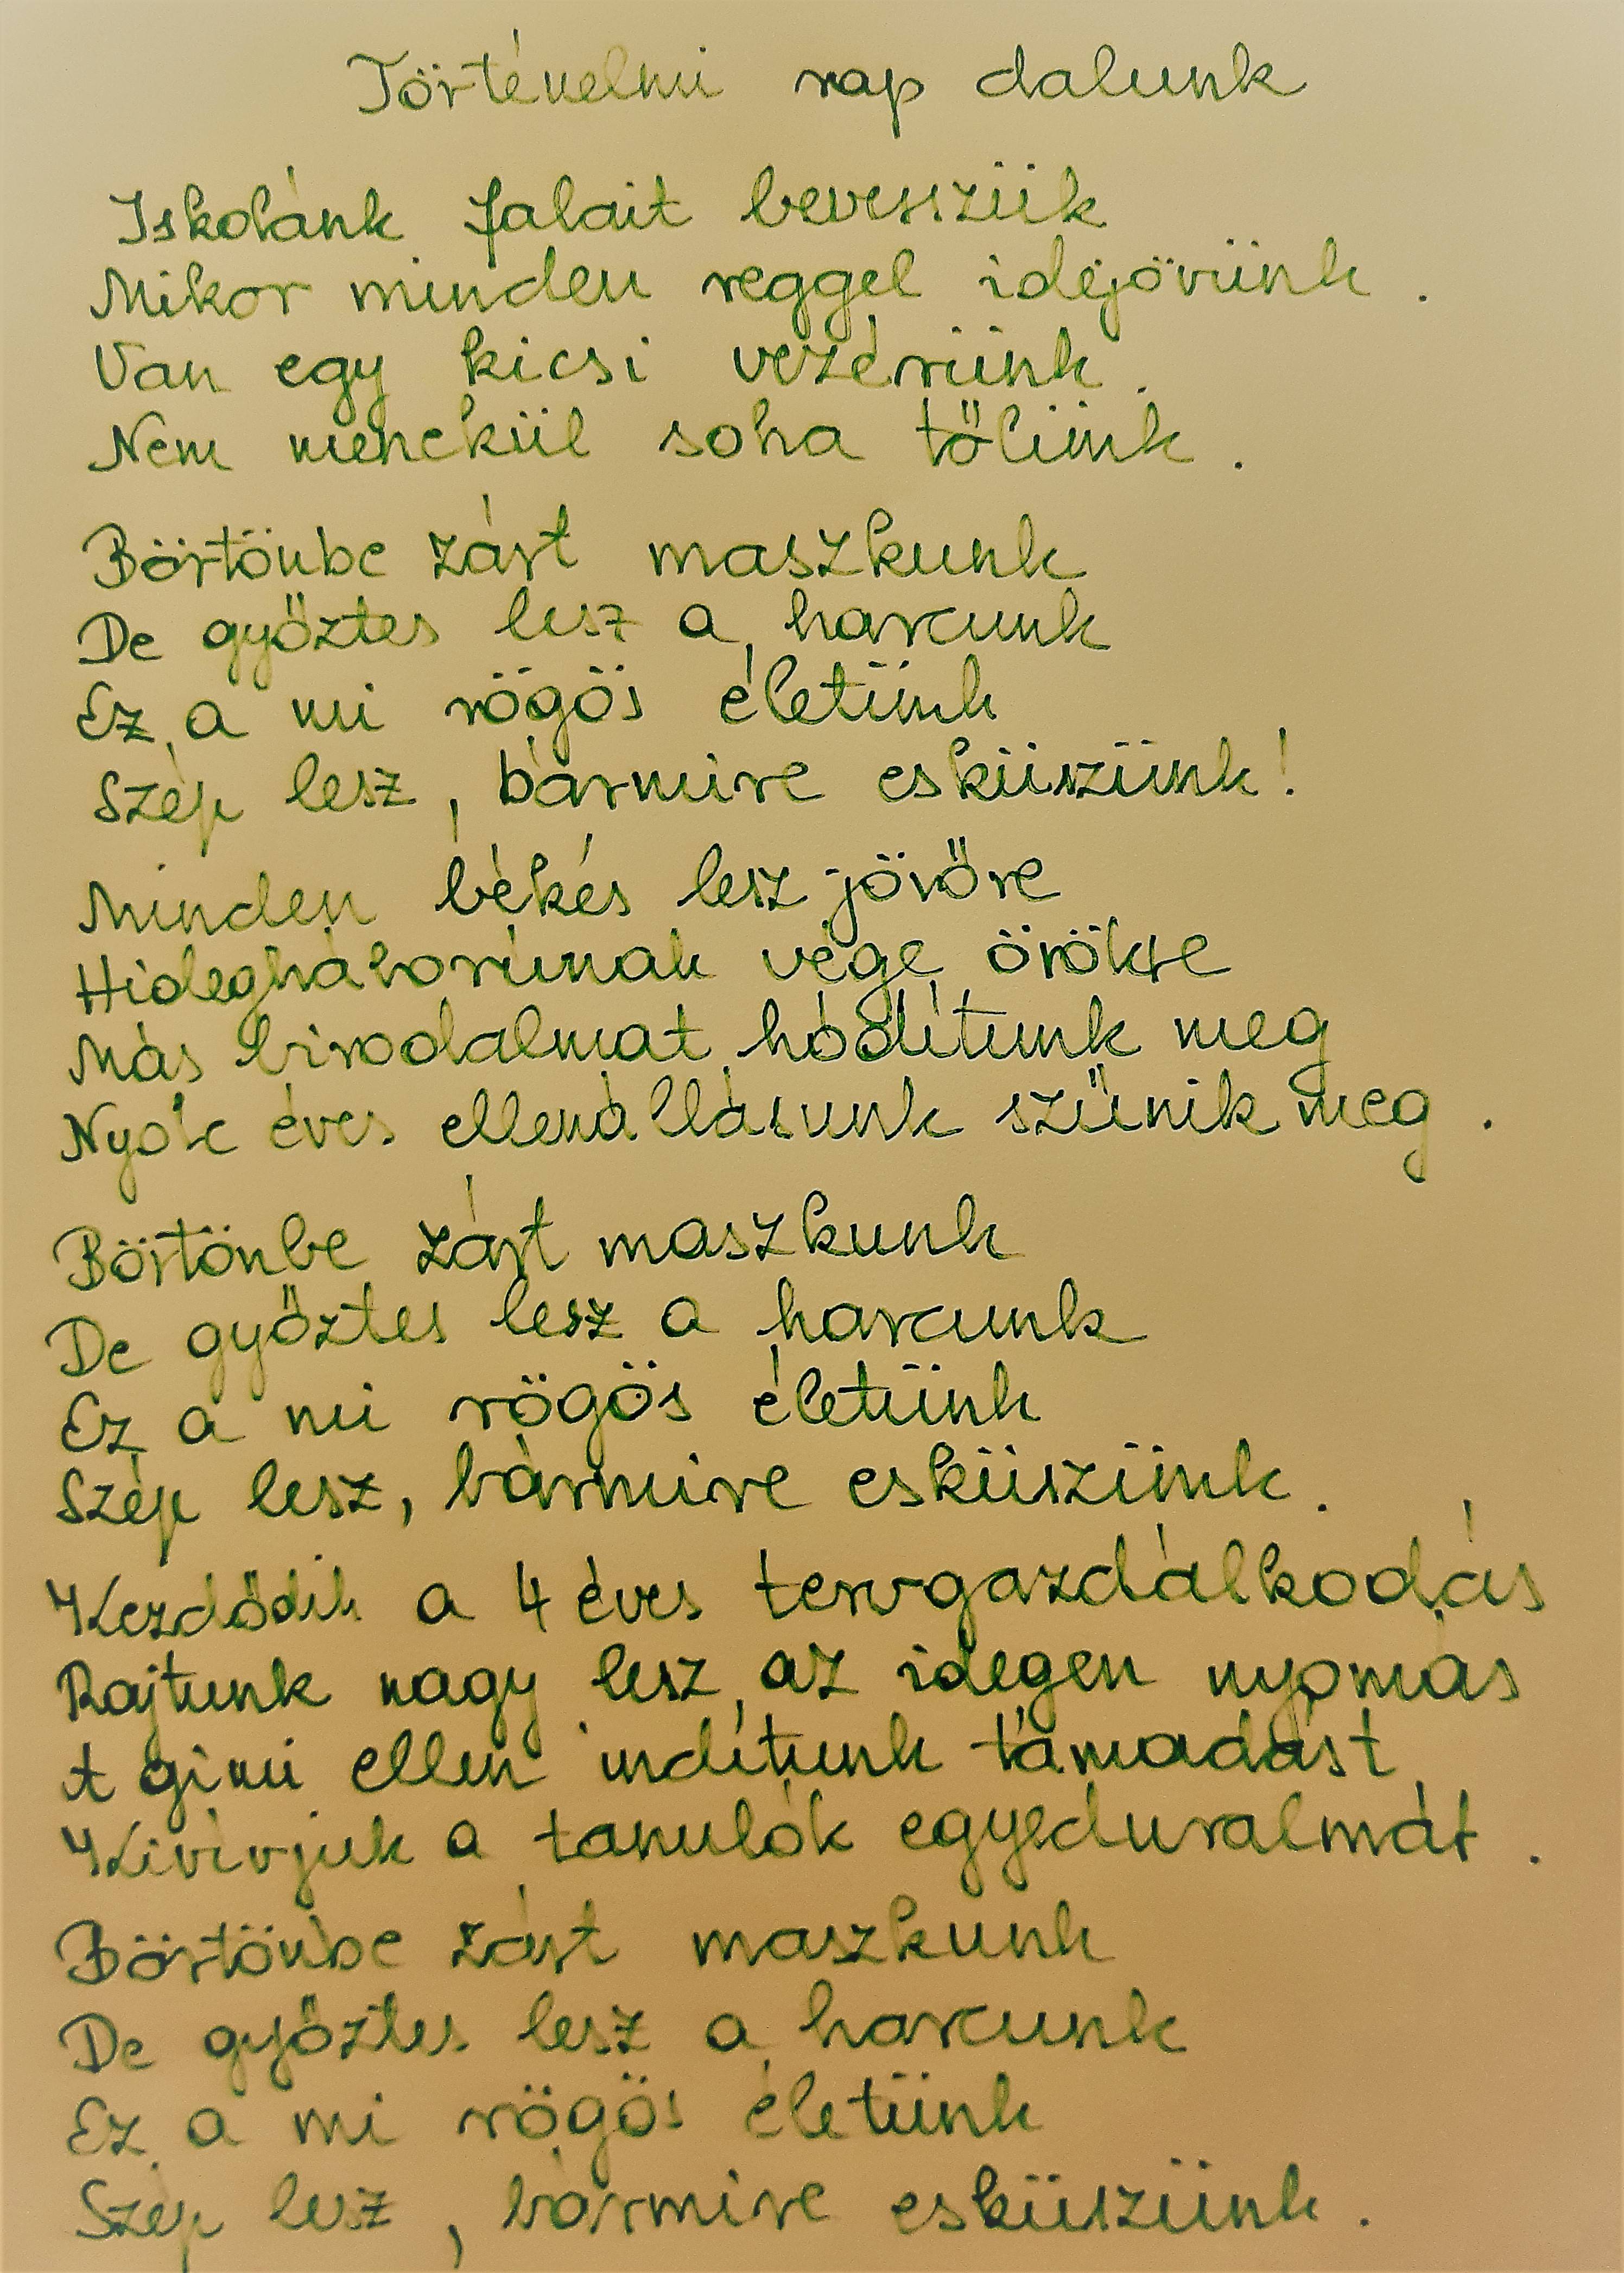 Történelmi rap dalunk
Iskolánk falait bevesszük
Mikor minden reggel idejövünk.
Van egy kicsi vezérünk.
Nem menekül soha tőlünk.
Börtönbe zárt maszkunk
De győztes lesz a harcunk
Ez a mi rögös életünk
Szép lesz, bármire esküszünk!
Minden békés lesz jövőre
Hidegháborúnak vége örökre
Más birodalmat hódítunk meg
Nyolc éves ellenállásunk szűnik meg.
Börtönbe zárt maszkunk
De győztes lesz a harcunk
Ez a mi rögös életünk
Szép lesz, bármire esküszünk.
Kezdődik a 4 éves tervgazdálkodás
Rajtunk nagy lesz az idegen nyomás
A gimi ellen indítunk támadást
Kivívjuk a tanulók egyeduralmát.
Börtönbe zárt maszkunk
De győztes lesz a harcunk
Ez a mi rögös életünk
Szép lesz, bármire esküszünk.